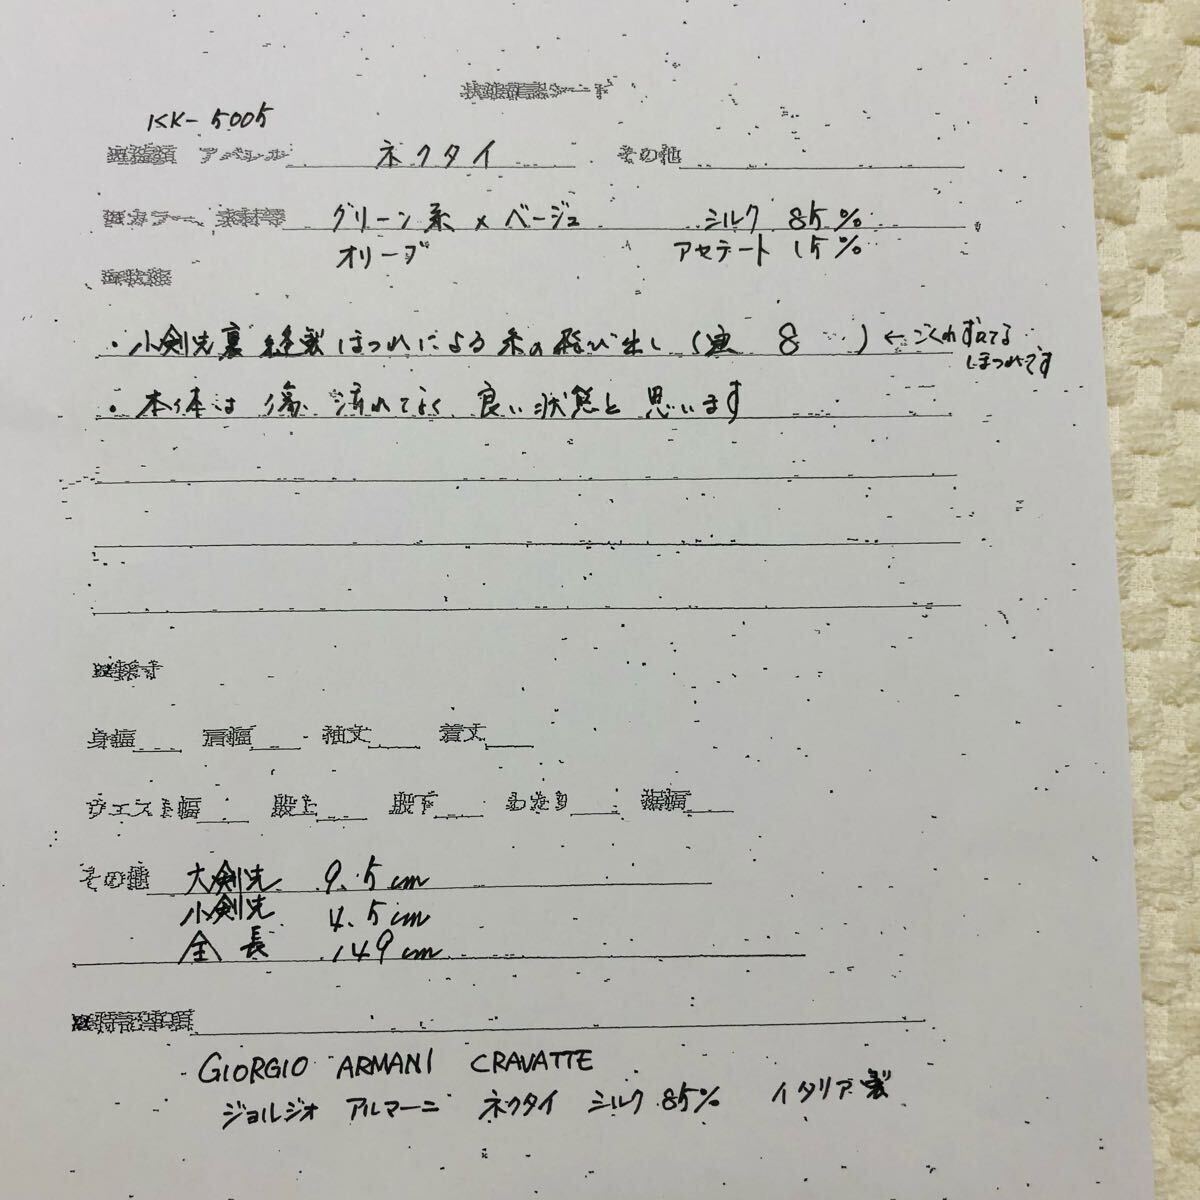 状態確認シート
KK-5005
■種類 アパレル ネクタイ その他
■カラー、素材等 グリーン系×ベージュ シルク 85%
オリーブ アセテート 15%
■状態
・小剣先裏 縫製ほつれによる糸の飛び出し( 8 )←ごくわずかな
ほつれです
・本体は傷、汚れてなく良い状態と思います
■採寸
身幅 肩幅 袖丈 着丈
ウエスト幅 股上 股下 わたり 裾幅
その他 大剣先 9.5cm
小剣先 4.5cm
全長 149cm
■特記事項
GIORGIO ARMANI CRAVATTE
ジョルジオ アルマーニ ネクタイ シルク 85% イタリア製